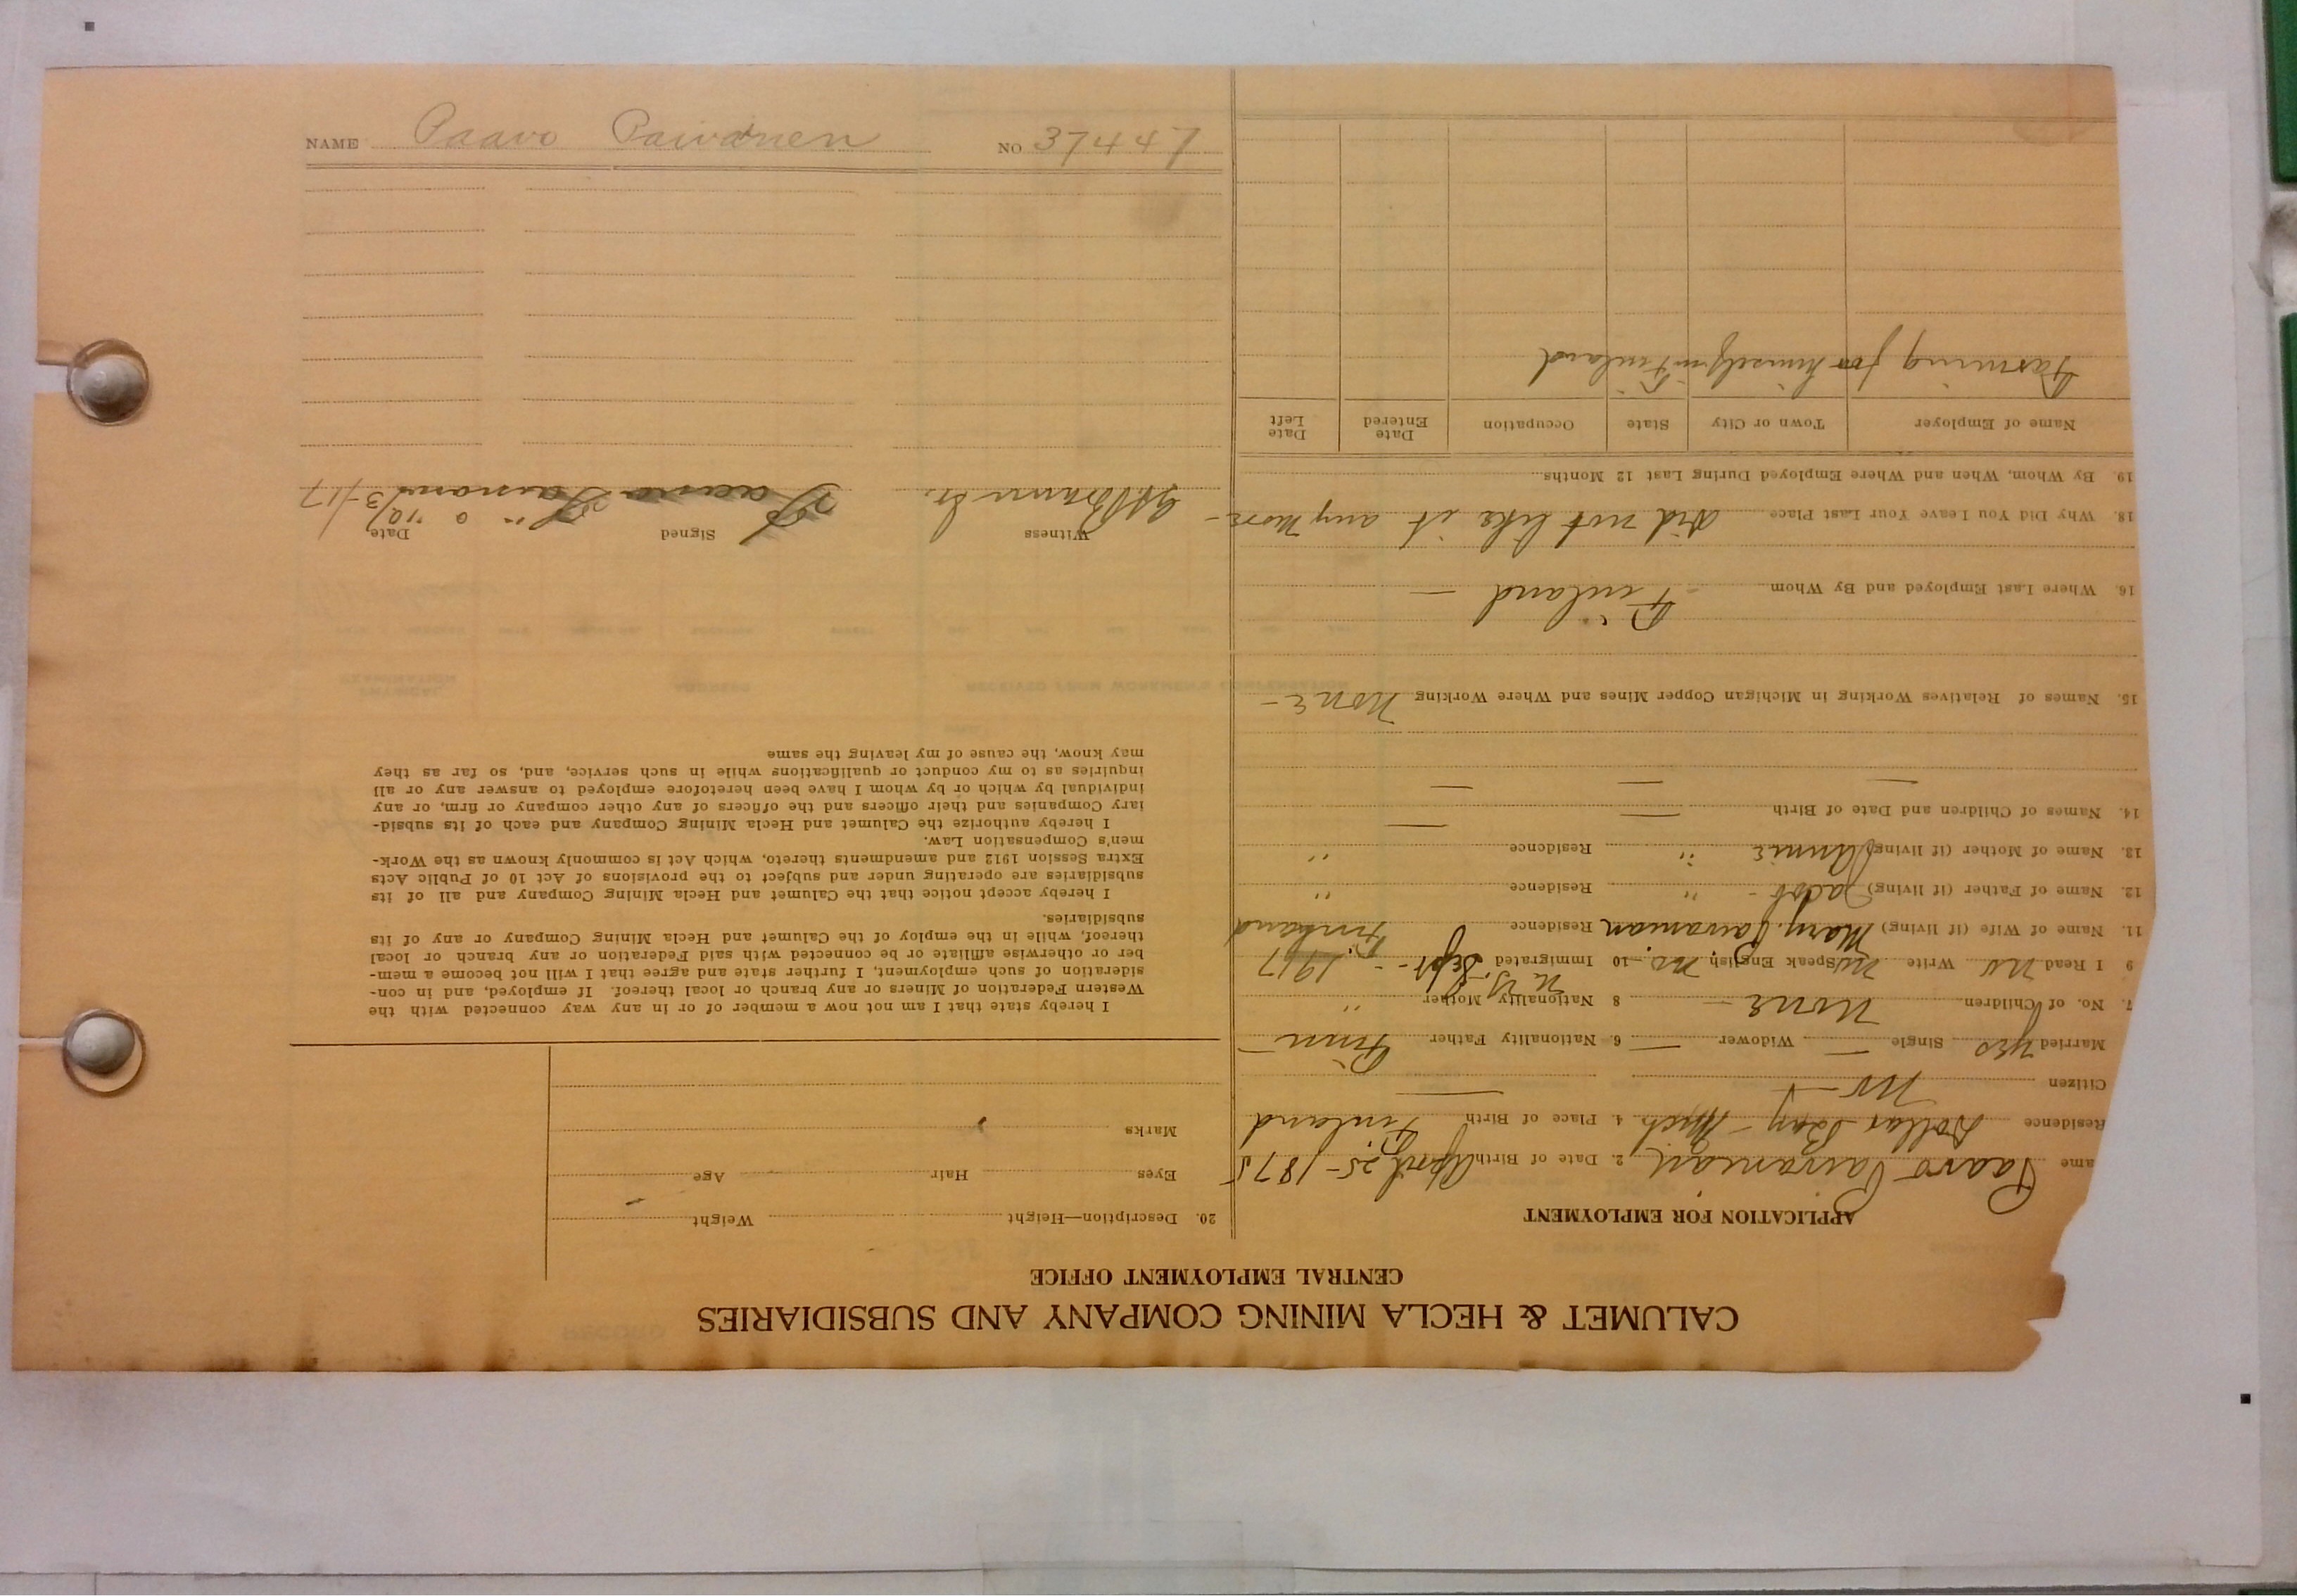 NAME Paavo Paivanen NO 37447
CALUMET & HECLA MINING COMPANY AND SUBSIDIARIES
CENTRAL EMPLOYMENT OFFICE
APPLICATION FOR EMPLOYMENT
ame Paavo Paivanian 2. Date of Birth April 25 - 1875
Residence Dollar Bay - Mich. 4. Place of Birth Finland
Citizen No -
Married yes Single — Widower — 6. Nationality Father Finn -
7. No. of Children None - 8 Nationality Mother "
9 I Read No Write No Speak English No 10 Immigrated N.Y. Sept - 1917
11. Name of Wife (if living) Mary Paivanian Residence Finland
12. Name of Father (if living) Jacob - " Residence "
13. Name of Mother (if living) Annie " Residence "
14. Names of Children and Date of Birth — —
— — —
15. Names of Relatives Working in Michigan Copper Mines and Where Working None -
16. Where Last Employed and By Whom - Finland —
18. Why Did You Leave Your Last Place Did not like it any more -
19. By Whom, When and Where Employed During Last 12 Months
Name of Employer Town or City State Occupation Date Entered Date Left
Farming for himself in Finland
20. Description—Height Weight
Eyes Hair Age
Marks
I hereby state that I am not now a member of or in any way connected with the
Western Federation of Miners or any branch or local thereof. If employed, and in con-
sideration of such employment, I further state and agree that I will not become a mem-
ber or otherwise affiliate or be connected with said Federation or any branch or local
thereof, while in the employ of the Calumet and Hecla Mining Company or any of its
subsidiaries.
I hereby accept notice that the Calumet and Hecla Mining Company and all of its
subsidiaries are operating under and subject to the provisions of Act 10 of Public Acts
Extra Session 1912 and amendments thereto, which Act is commonly known as the Work-
men's Compensation Law.
I hereby authorize the Calumet and Hecla Mining Company and each of its subsid-
iary Companies and their officers and the officers of any other company or firm, or any
individual by which or by whom I have been heretofore employed to answer any or all
inquiries as to my conduct or qualifications while in such service, and, so far as they
may know, the cause of my leaving the same
Witness Signed Date
10/3/17